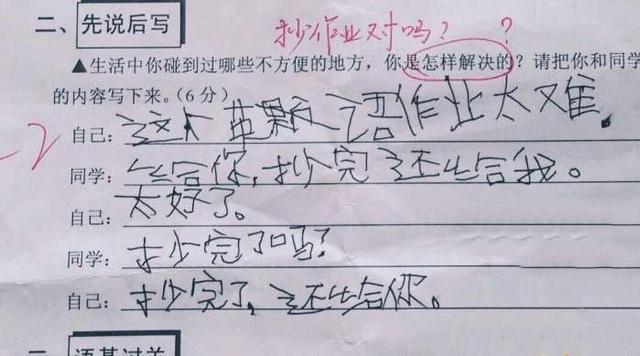 抄作业对吗？ ？
二、先说后写
▲生活中你碰到过哪些不方便的地方，你是怎样解决的？请把你和同学
的内容写下来。（6分）
-2
自己：这英语作业太难。
同学：给你，抄完还给我。
自己：太好了。
同学：抄完了吗？
自己：抄完了，还给你。